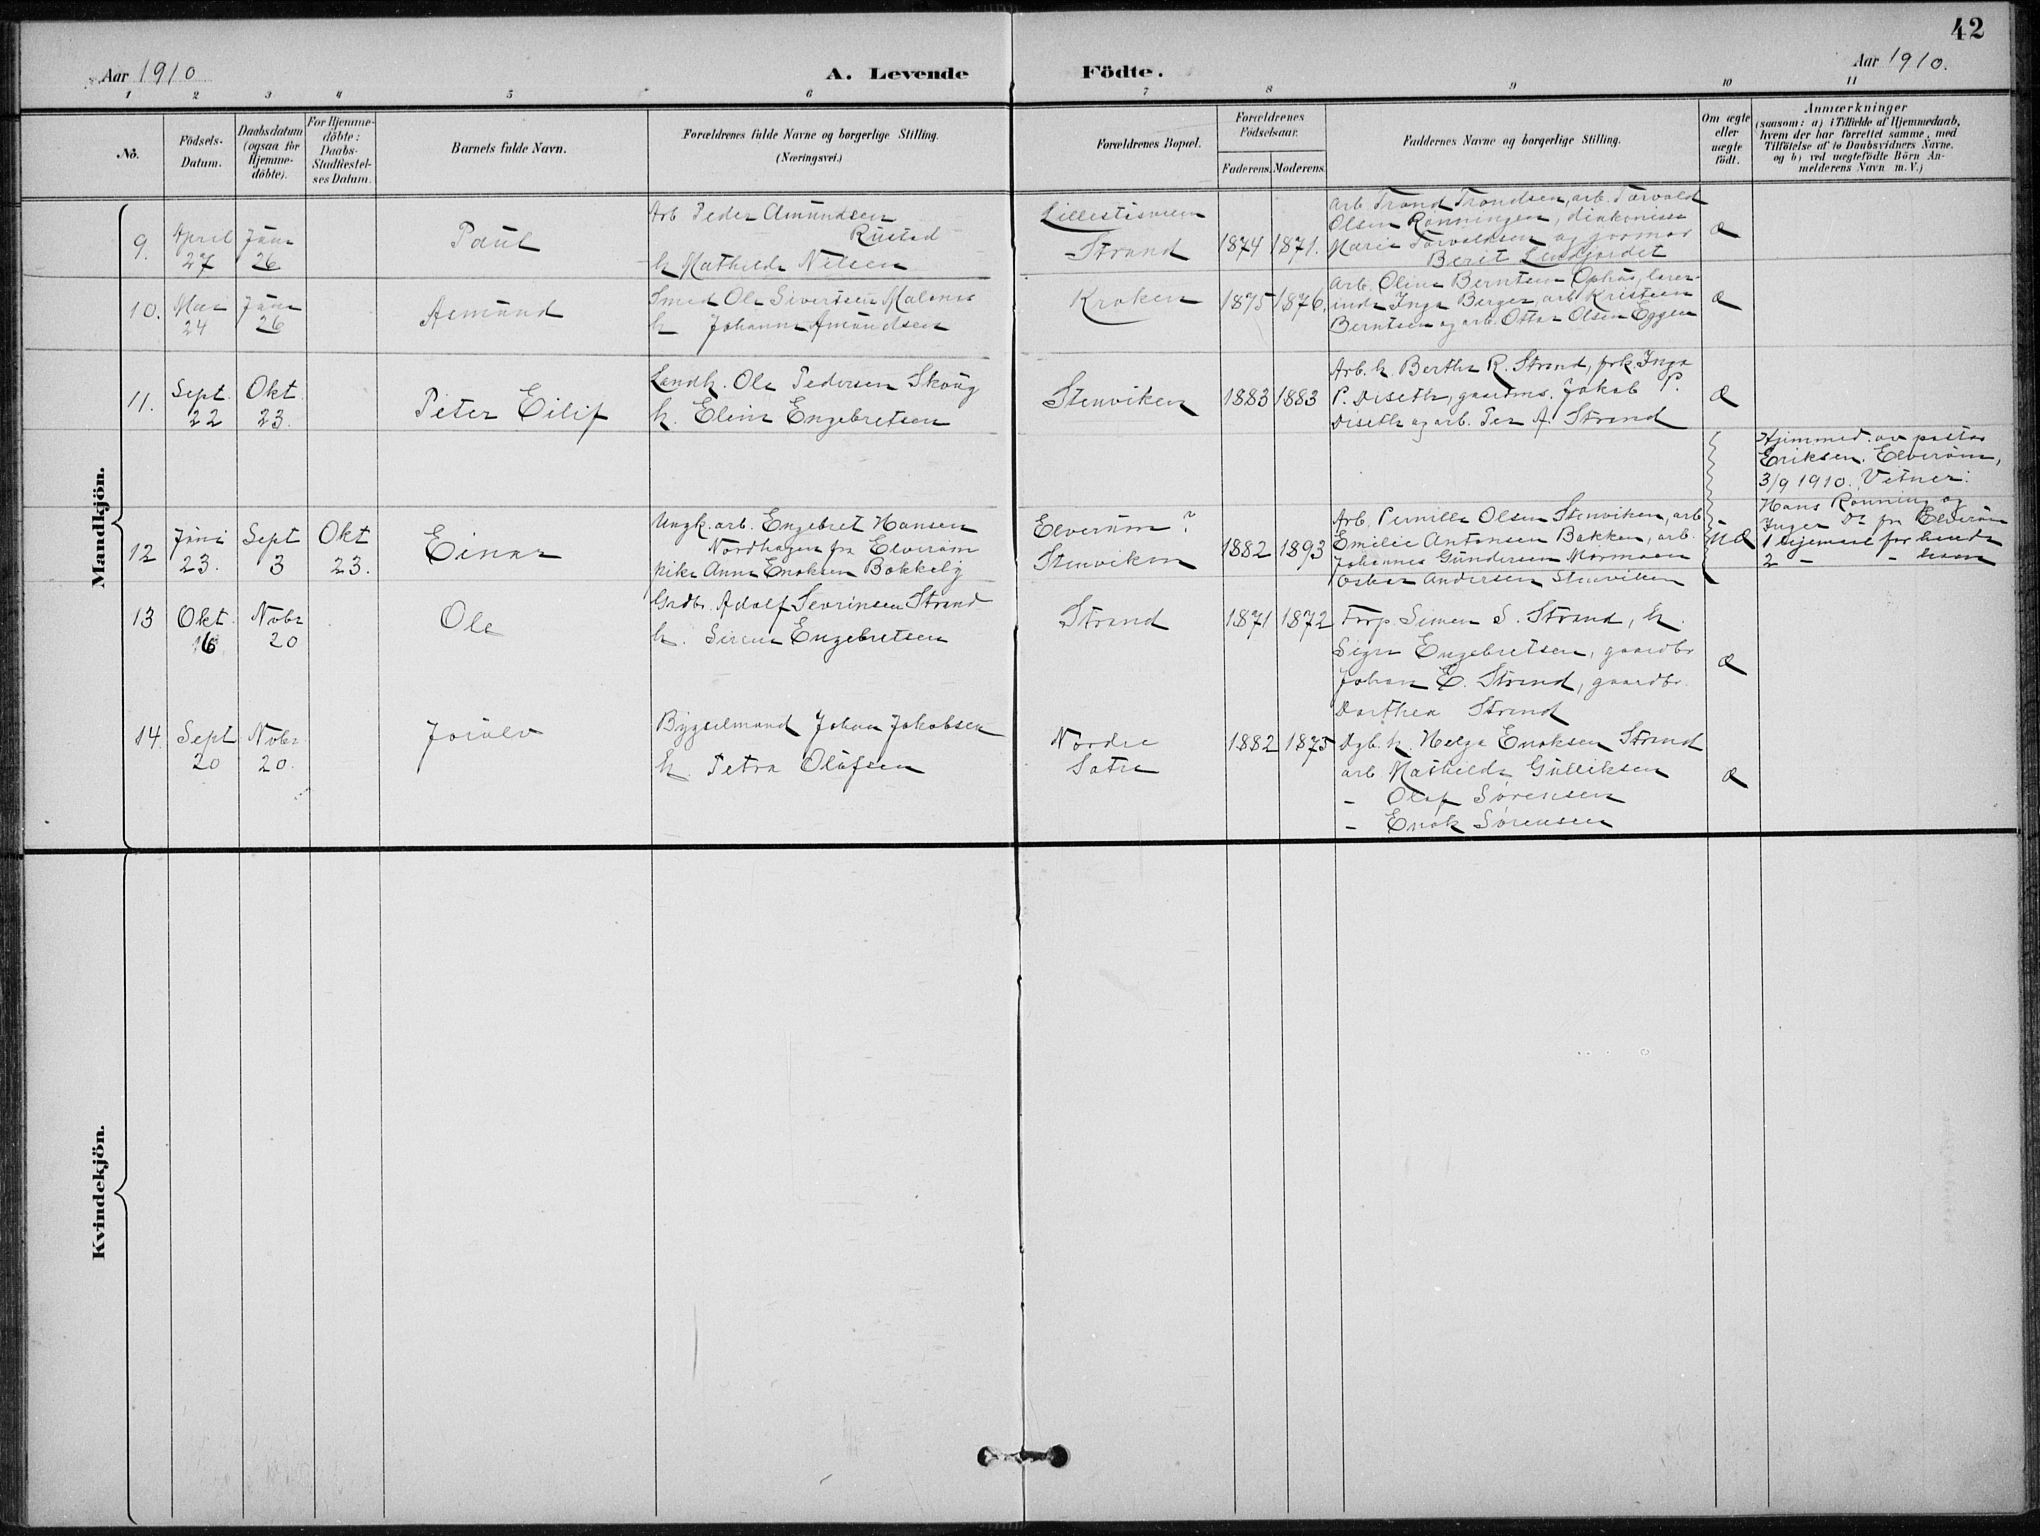 42
Aar 1910
A. Levende Födte.
Aar 1910.
1 2 3 4 5 6 7 8 9 10 11
No.
Födsels-
Datum.
Daabsdatum
(ogsaa for
Hjemme-
döbte).
For Hjemme-
döbte:
Daabs-
Stadfæstel-
ses Datum.
Barnets fulde Navn.
Forældrenes fulde Navne og borgerlige Stilling.
(Næringsvei.)
Forældrenes Bopæl.
Forældrenes
Födselsaar.
Faderens. Moderens.
Faddernes Navne og borgerlige Stilling.
Om ægte
eller
uægte
födt.
Anmærkninger
(saasom: a) i Tilfælde af Hjemmedaab,
hvem der har forrettet samme, med
Tilföielse af to Daabsvidners Navne.
og b) ved uægtefödte Börn An-
melderens Navn m. V.)
Mandkjön.
9.
April
27
Juni
26
Paul
Arb Peder Amundsen
Rustad
h Mathilde Nilsen
Strand
1874 1871.
Arb. Trond Trondsen, arb. Torvald
Olsen Rønningen, diakonisse
Marie Torvaldsen og jormor
Berit
æ
10.
Mai
24
Juni
26
Asmund
Smed Ole Sivertsen
h Johanne Amundsen
Kroken
1875 1876.
Arb. Oline Berntsen Ophus, lærer-
inde Inga Berger, arb Kristian
Berntsen og arb. Otto Olsen Eggen
æ
11.
Sept.
22
Okt.
23.
Peter Eilif
Landh. Ole Pedersen Skoug
h. Eline Engebretsen
Stenviken
1883 1883
Arb. h. Berthe R. Strand, frk. Inga
P. Diseth, gaardms. Jakob P.
Diseth og arb. Per A. Strand
æ
12
Juni
23.
Sept
3
Okt
23.
Einar
Ungk. arb. Engebret Hansen
Nordhagen fra Elverum
Pike Anne Enoksen Bakkely
Elverum?
Stenviken
1882 1893
Arb. Pernille Olsen Stenviken, arb
Emilie Antonsen Bakken, arb.
Johannes Gundersen Mormoen
Oskar Andersen Stenviken
uæ
Hjemmed. av pastor
Eriksen, Elverum,
3/9 1910. Vitner:
Hans Rønning og
Inger Do fra Elverum
1 leiermaal for hende
2 - - ham
13
Okt.
16
Nobr
20
Ole
Grdbr. Adolf Sevrinsen Strand
h. Sirene Engebretsen
Strand
1871 1872
Forp. Simen S. Strand, h.
Signe Engebretsen, gaardbr
Johan E. Strand, gaardbr.
Dorthea Strand
æ
14.
Sept
20
Nobr
20.
Joralv
Bygselmand Johan Jakobsen
h. Petra Olufsen
Nordre
Satre
1882 1875
Dgb. h. Helga Enoksen Strand
arb Mathilde Gulliksen
- Olaf Sørensen
- Enok Sørensen
æ
Kvindekjön.